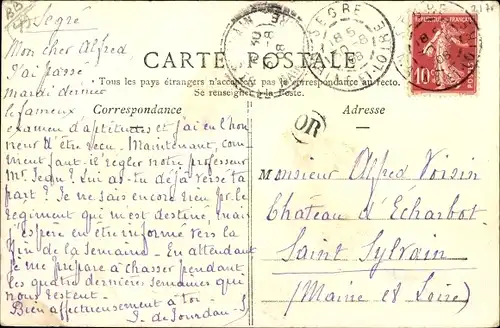 Segré
CARTE POSTALE
Tous les pays étrangers n'acceptent pas la correspondance au recto.
Se renseigner à la Poste.
Correspondance
Adresse
Mon cher Alfred
J'ai passé
mardi dernier
le fameux
examen d'aptitudes et j'ai eu l'hon
neur d'être reçu. Maintenant, com
ment faut-il régler notre professeur
Mr. Segu? Lui as-tu déjà versé ta
part? Je ne sais encore rien pr. le
régiment qui m'est destiné, mais
j'espère en être informé vers la
fin de la semaine. En attendant
je me prépare à chasser pendant
les quatre dernières semaines qui
nous restent.
Bien affectueusement à toi.
J. de Jourdan
Monsieur Alfred Voisin
Château d'Écharbot
Saint Sylvain
(Maine et Loire)
OR
SEGRÉ
10